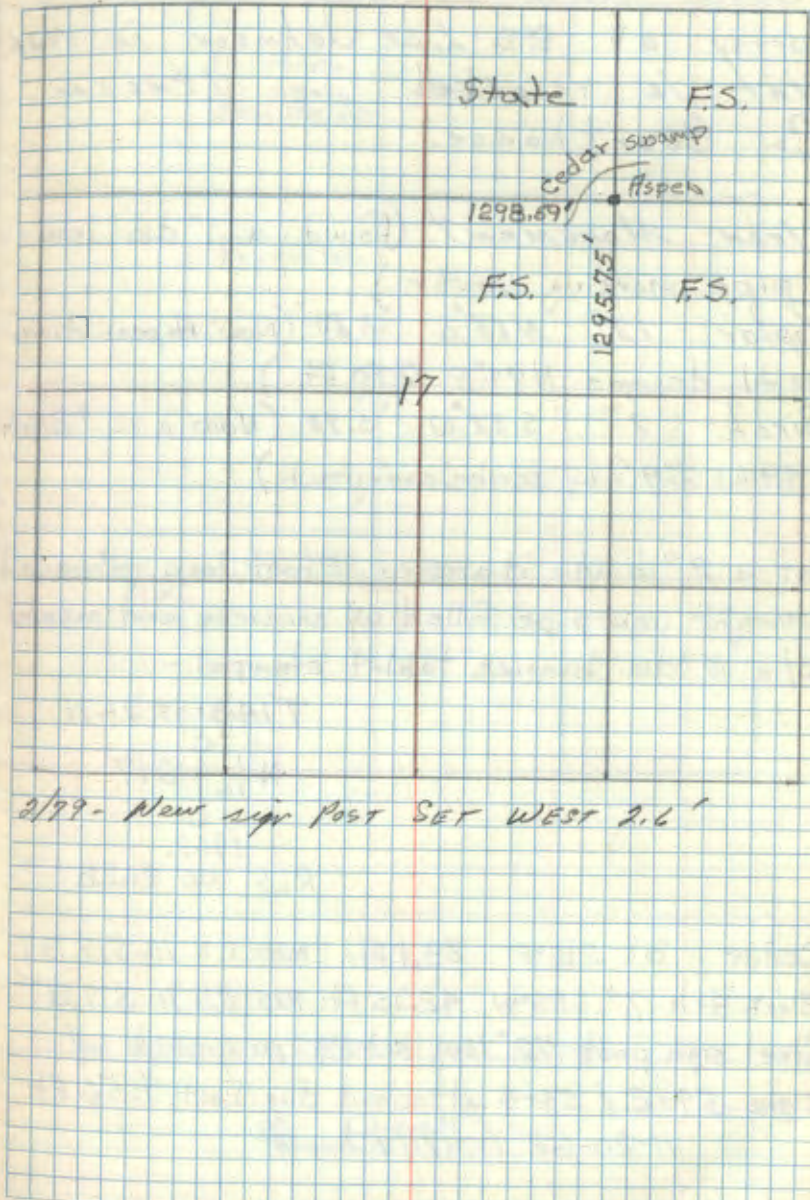 State
F.S.
cedar swamp
Aspen
1298.69'
F.S.
1295.75'
F.S.
17
2/79 - New sign Post SET WEST 2.6'